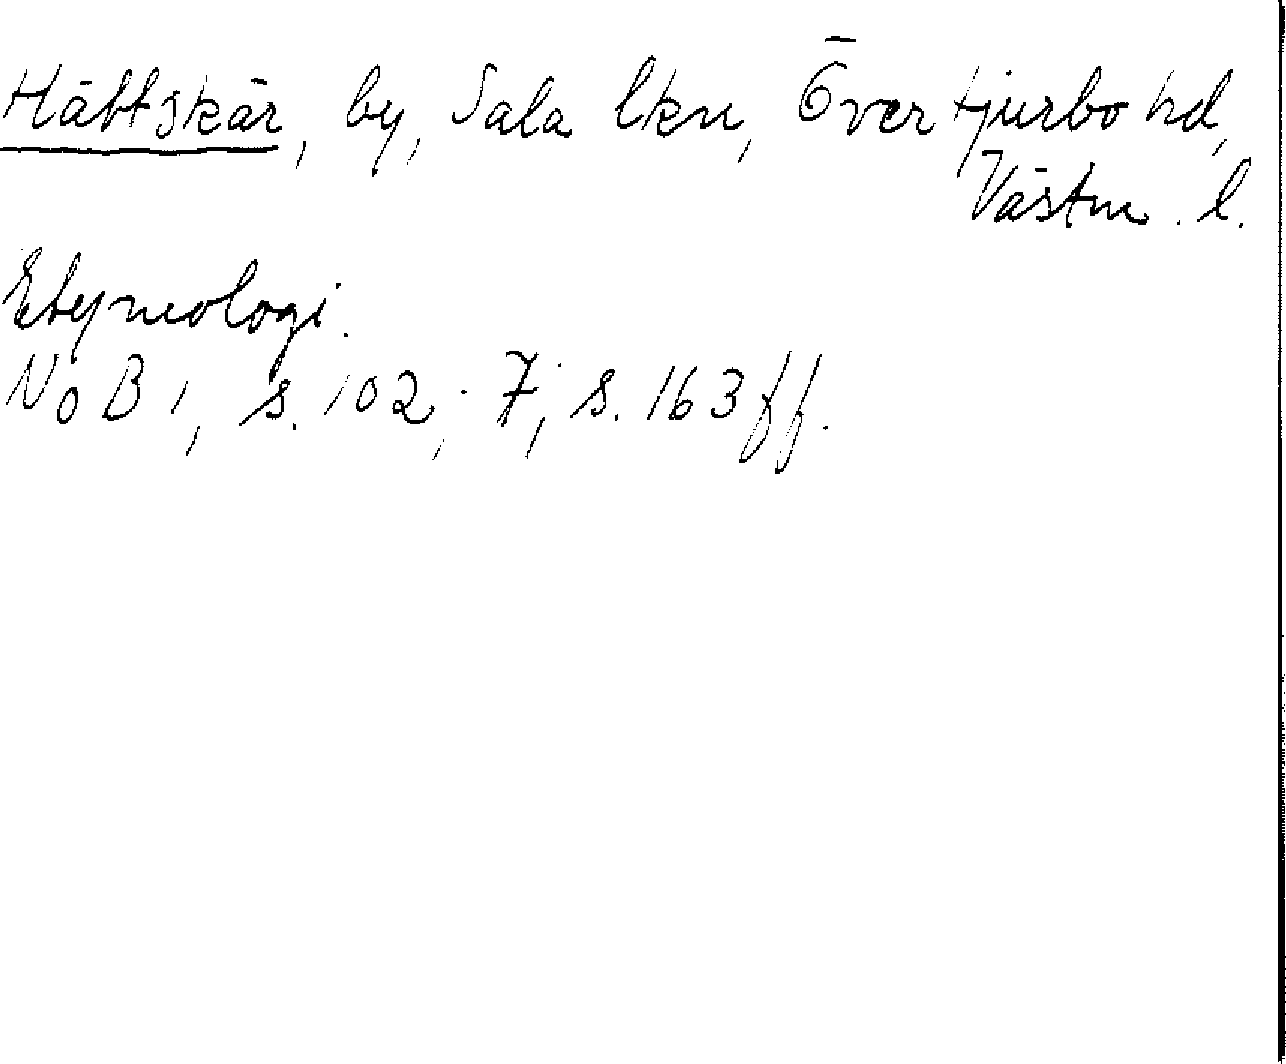 Hättskär, by, Sala lkn, Övertjurbo hd,
Västm. l.
Etymologi.
NoB 1, s. 102; 7, s. 163 ff.